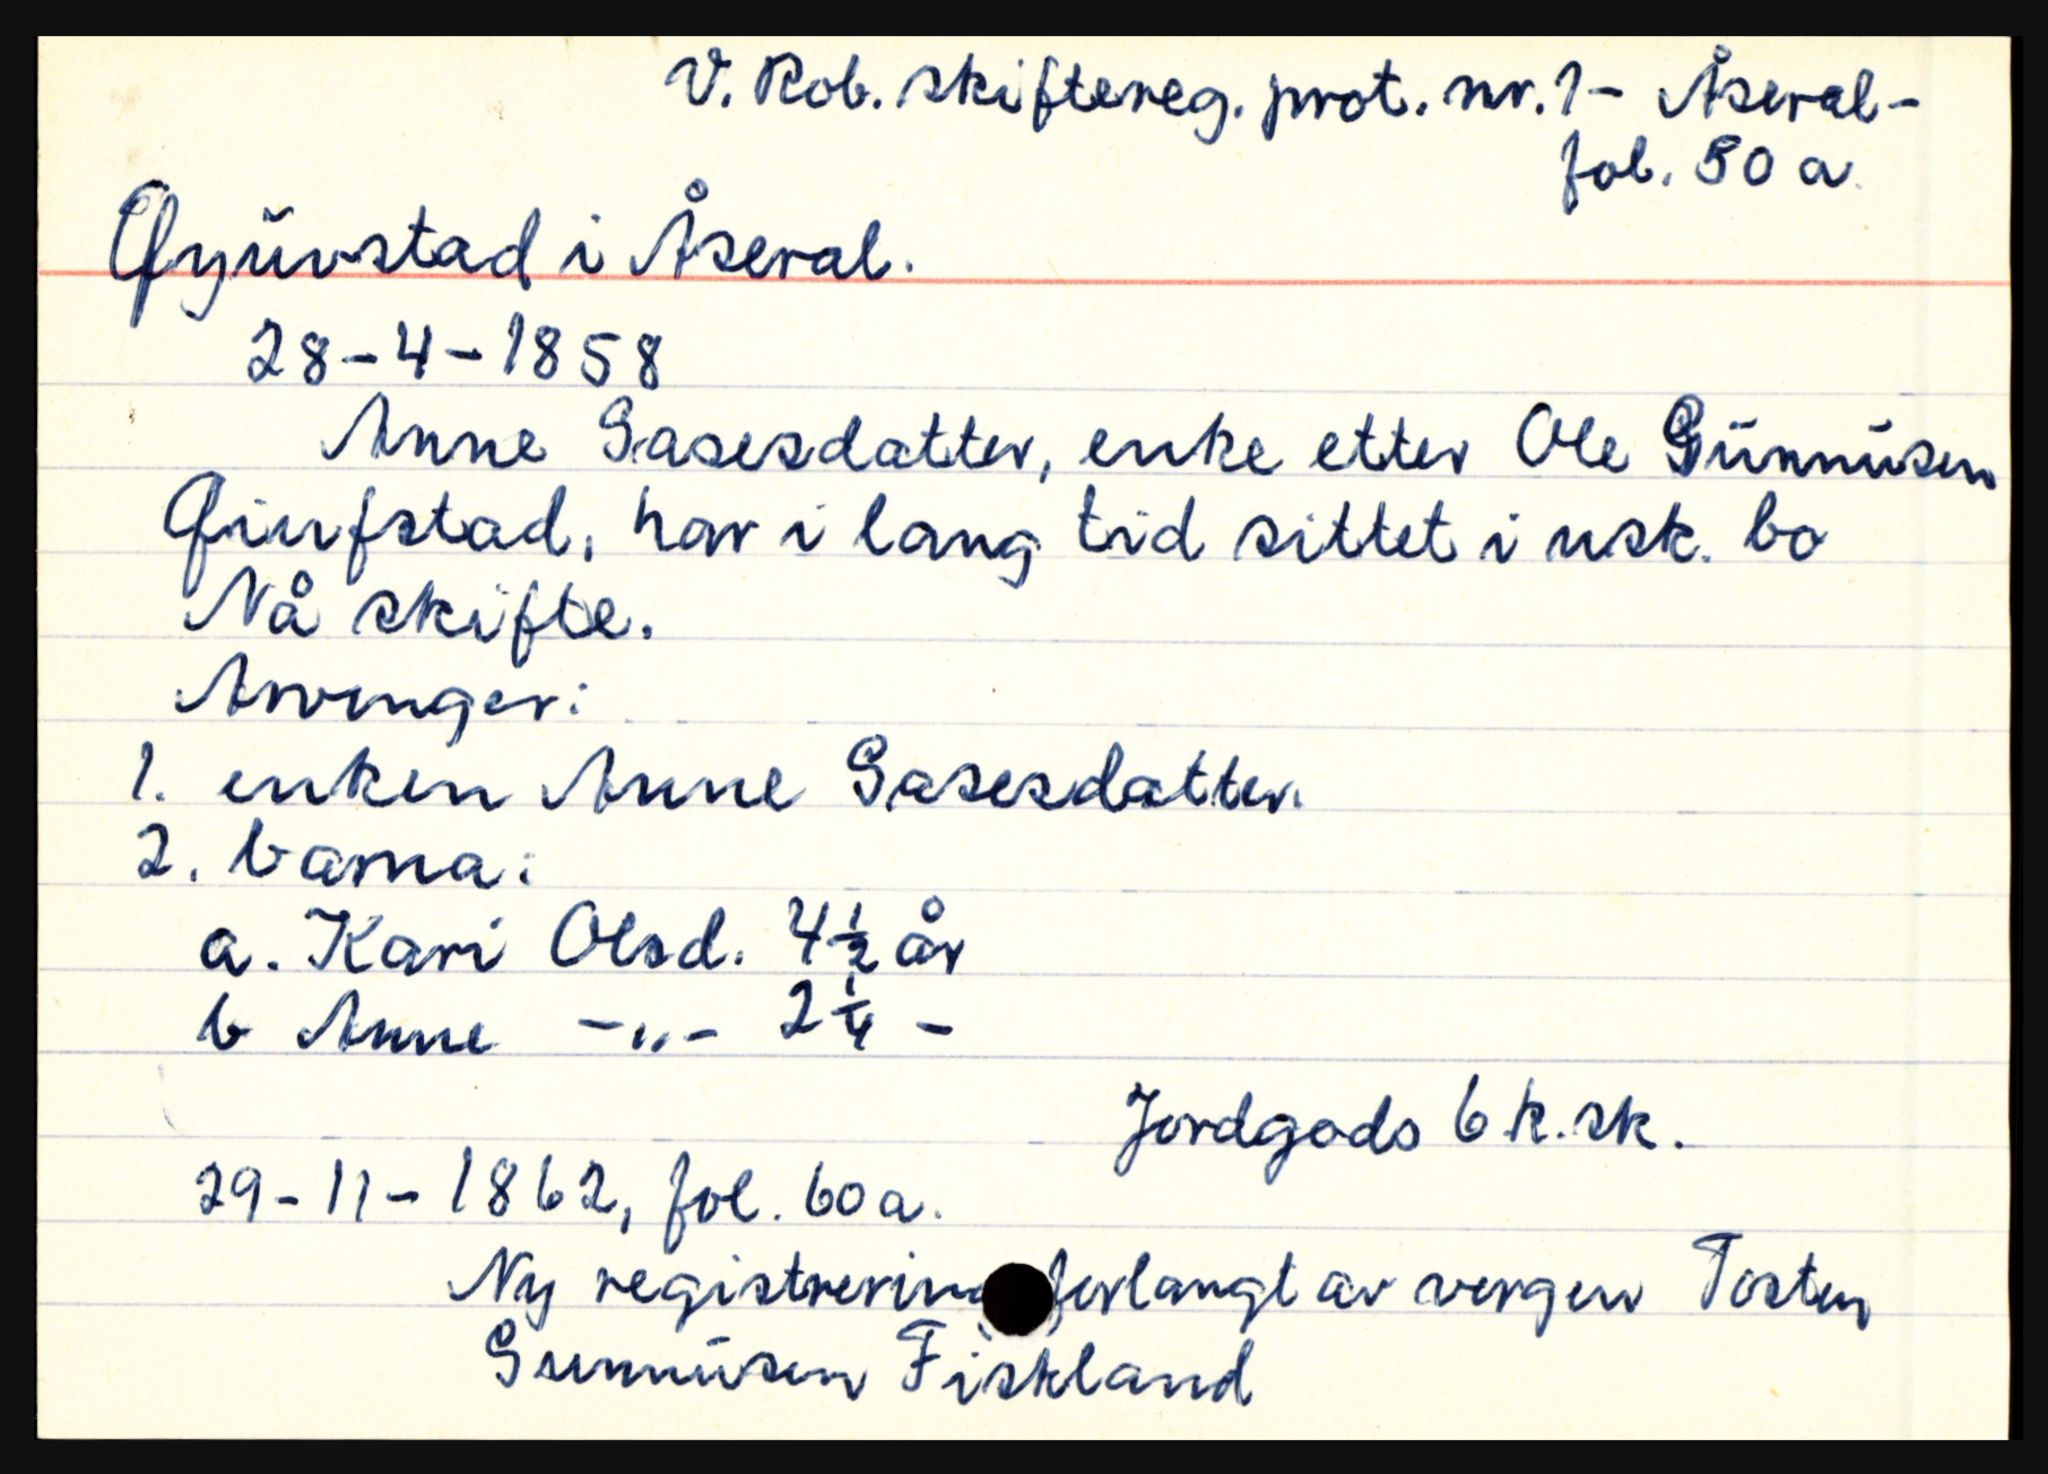 V. Rob. skiftereg. prot. nr. 1 - Åseral -
fol. 50 a.
Qyuvstad i Åseral.
28-4-1858
Anne Gasesdatter, enke etter Ole Gunnusen
Qiufstad, har i lang tid sittet i usk. bo
Nå skifte.
Arvinger:
1. enken Anne Gasesdatter.
2. barna:
a. Kari Olsd. 4½ år
b Anne -„- 2¼ -
Jordgods 6 k. sk.
29-11-1862, fol. 60a.
Ny registrering forlangt av vergen Tosten
Gunnusen Fiskland